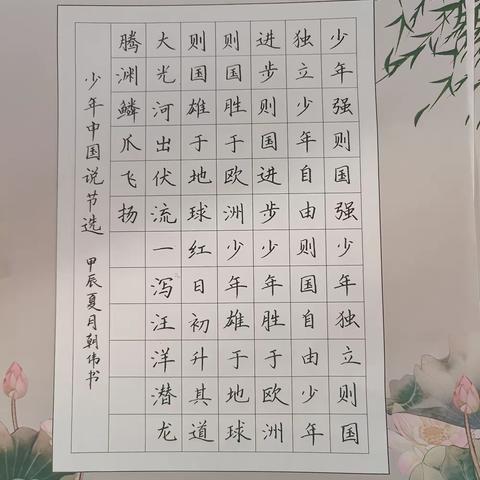 少年强则国强少年独立则国
独立少年自由则国自由少年
进步则国进步少年胜于欧洲
则国胜于欧洲少年雄于地球
则国雄于地球红日初升其道
大光河出伏流一泻汪洋潜龙
腾渊鳞爪飞扬
少年中国说节选 甲辰夏月朝伟书